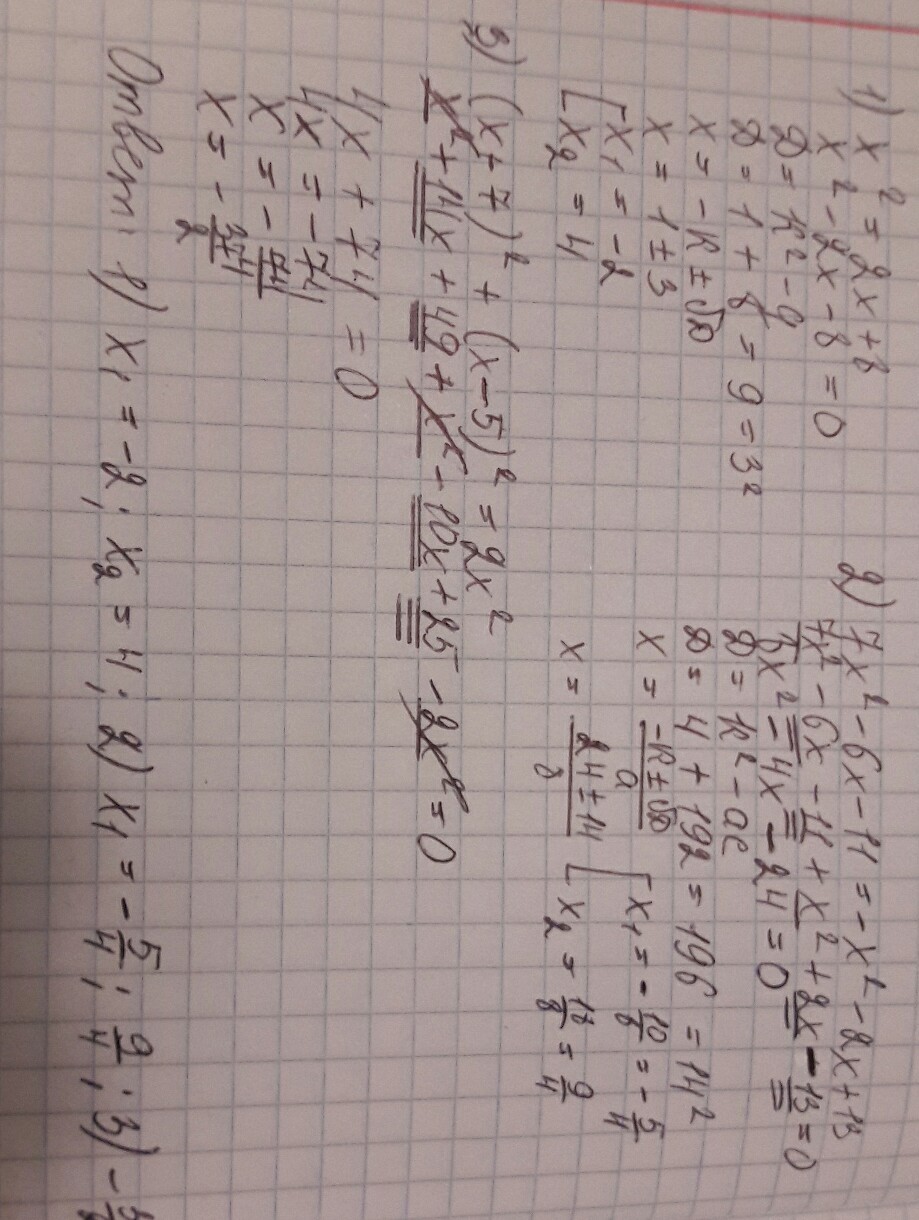 1) x² = 2x + 8
x² - 2x - 8 = 0
D = k² - q
D = 1 + 8 = 9 = 3²
x = -k ± √D
x = 1 ± 3
[ x₁ = -2
x₂ = 4
2) 7x² - 6x - 11 = -x² - 2x + 13
7x² - 6x - 11 + x² + 2x - 13 = 0
8x² - 4x - 24 = 0
D = k² - ac
D = 4 + 192 = 196 = 14²
x = (-k ± √D)/a
x = (24 ± 14)/8
[ x₁ = -10/8 = -5/4
x₂ = 18/8 = 9/4
3) (x + 7)² + (x - 5)² = 2x²
x² + 14x + 49 + x² - 10x + 25 - 2x² = 0
4x + 74 = 0
4x = -74
x = -74/4
x = -37/2
Ответ: 1) x₁ = -2; x₂ = 4; 2) x₁ = -5/4; 9/4; 3) -